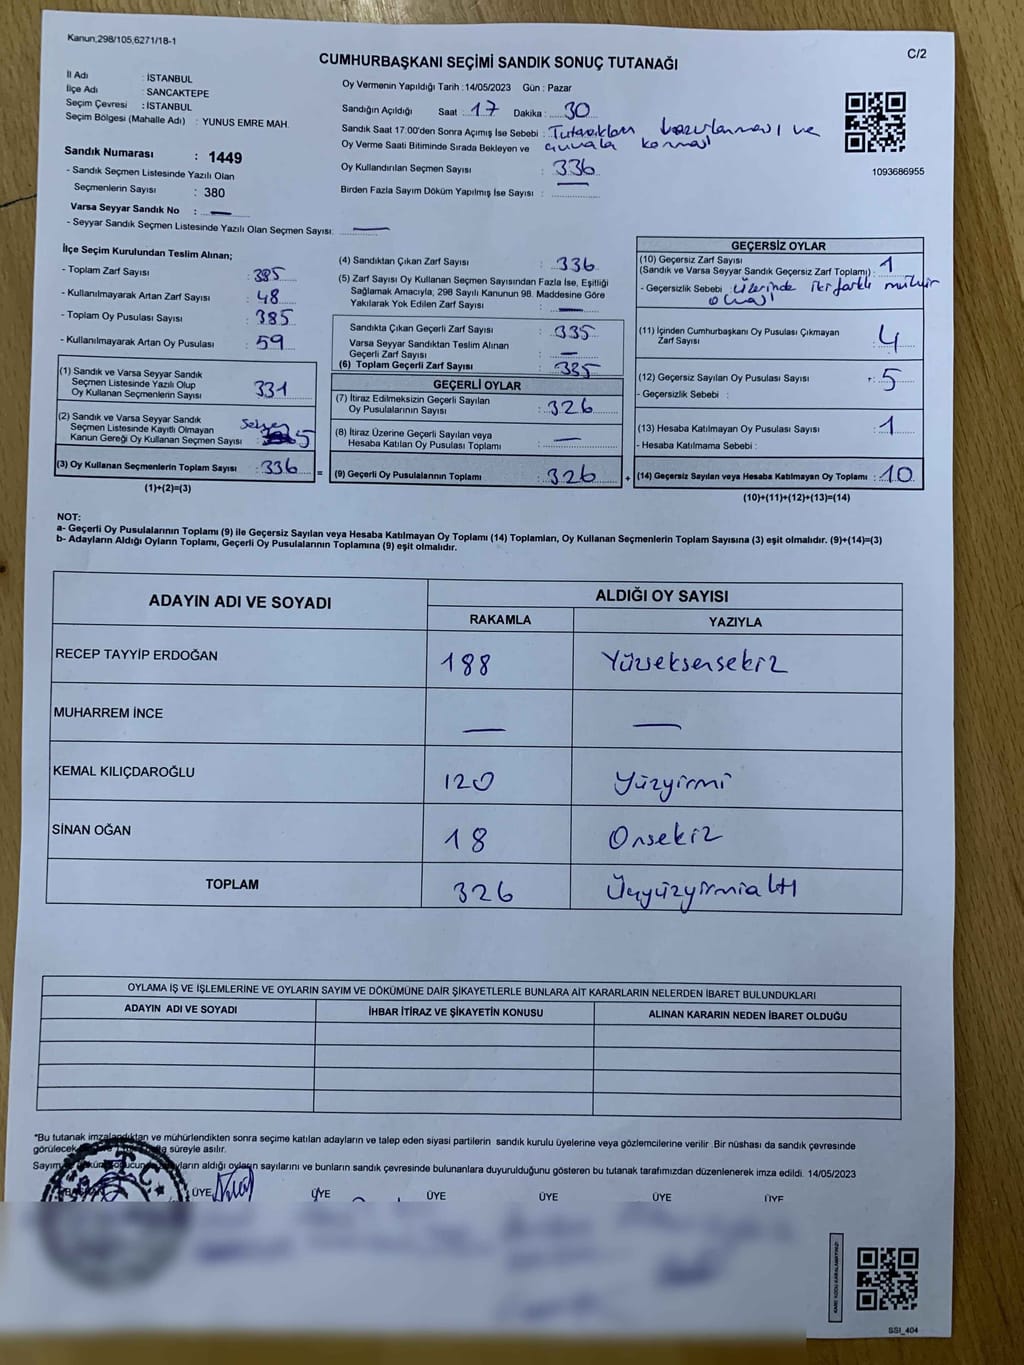 Kanun;298/105,6271/18-1
C/2
CUMHURBAŞKANI SEÇİMİ SANDIK SONUÇ TUTANAĞI
İl Adı : İSTANBUL
İlçe Adı : SANCAKTEPE
Seçim Çevresi : İSTANBUL
Seçim Bölgesi (Mahalle Adı) : YUNUS EMRE MAH.
Sandık Numarası : 1449
- Sandık Seçmen Listesinde Yazılı Olan
Seçmenlerin Sayısı : 380
Varsa Seyyar Sandık No : —
- Seyyar Sandık Seçmen Listesinde Yazılı Olan Seçmen Sayısı: —
Oy Vermenin Yapıldığı Tarih :14/05/2023 Gün : Pazar
Sandığın Açıldığı Saat : 17 Dakika : 30
Sandık Saat 17:00'den Sonra Açımış İse Sebebi : Tutanakları ve
Oy Verme Saati Bitiminde Sırada Bekleyen ve
Oy Kullandırılan Seçmen Sayısı : 336
Birden Fazla Sayım Döküm Yapılmış İse Sayısı : —
1093686955
İlçe Seçim Kurulundan Teslim Alınan;
- Toplam Zarf Sayısı : 385
- Kullanılmayarak Artan Zarf Sayısı : 48
- Toplam Oy Pusulası Sayısı : 385
- Kullanılmayarak Artan Oy Pusulası : 59
(1) Sandık ve Varsa Seyyar Sandık
Seçmen Listesinde Yazılı Olup
Oy Kullanan Seçmenlerin Sayısı : 331
(2) Sandık ve Varsa Seyyar Sandık
Seçmen Listesinde Kayıtlı Olmayan
Kanun Gereği Oy Kullanan Seçmen Sayısı : 5
(3) Oy Kullanan Seçmenlerin Toplam Sayısı : 336
(1)+(2)=(3)
=
(4) Sandıktan Çıkan Zarf Sayısı : 336
(5) Zarf Sayısı Oy Kullanan Seçmen Sayısından Fazla İse, Eşitliği
Sağlamak Amacıyla, 298 Sayılı Kanunun 98. Maddesine Göre
Yakılarak Yok Edilen Zarf Sayısı : —
Sandıkta Çıkan Geçerli Zarf Sayısı : 335
Varsa Seyyar Sandıktan Teslim Alınan
Geçerli Zarf Sayısı : —
(6) Toplam Geçerli Zarf Sayısı : 335
GEÇERLİ OYLAR
(7) İtiraz Edilmeksizin Geçerli Sayılan
Oy Pusulalarının Sayısı : 326
(8) İtiraz Üzerine Geçerli Sayılan veya
Hesaba Katılan Oy Pusulaları Toplamı : —
(9) Geçerli Oy Pusulalarının Toplamı : 326
+
GEÇERSİZ OYLAR
(10) Geçersiz Zarf Sayısı
(Sandık ve Varsa Seyyar Sandık Geçersiz Zarf Toplamı) : 1
- Geçersizlik Sebebi : üzerinde iki farklı mühür
olması
(11) İçinden Cumhurbaşkanı Oy Pusulası Çıkmayan
Zarf Sayısı : 4
(12) Geçersiz Sayılan Oy Pusulası Sayısı : 5
- Geçersizlik Sebebi :
(13) Hesaba Katılmayan Oy Pusulası Sayısı : 1
- Hesaba Katılmama Sebebi :
(14) Geçersiz Sayılan veya Hesaba Katılmayan Oy Toplamı : 10
(10)+(11)+(12)+(13)=(14)
NOT:
a- Geçerli Oy Pusulalarının Toplamı (9) ile Geçersiz Sayılan veya Hesaba Katılmayan Oy Toplamı (14) Toplamları, Oy Kullanan Seçmenlerin Toplam Sayısına (3) eşit olmalıdır. (9)+(14)=(3)
b- Adayların Aldığı Oyların Toplamı, Geçerli Oy Pusulalarının Toplamına (9) eşit olmalıdır.
ADAYIN ADI VE SOYADI
ALDIĞI OY SAYISI
RAKAMLA YAZIYLA
RECEP TAYYİP ERDOĞAN 188 Yüzseksensekiz
MUHARREM İNCE — —
KEMAL KILIÇDAROĞLU 120 Yüzyirmi
SİNAN OĞAN 18 Onsekiz
TOPLAM 326 Üçyüzyirmialtı
OYLAMA İŞ VE İŞLEMLERİNE VE OYLARIN SAYIM VE DÖKÜMÜNE DAİR ŞİKAYETLERLE BUNLARA AİT KARARLARIN NELERDEN İBARET BULUNDUKLARI
ADAYIN ADI VE SOYADI İHBAR İTİRAZ VE ŞİKAYETİN KONUSU ALINAN KARARIN NEDEN İBARET OLDUĞU
*Bu tutanak imzalandıktan ve mühürlendikten sonra seçime katılan adayların ve talep eden siyasi partilerin sandık kurulu üyelerine veya gözlemcilerine verilir .Bir nüshası da sandık çevresinde
görülecek süreyle asılır.
Sayım aldığı oyların sayılarını ve bunların sandık çevresinde bulunanlara duyurulduğunu gösteren bu tutanak tarafımızdan düzenlenerek imza edildi. 14/05/2023
ÜYE ÜYE ÜYE ÜYE ÜYE ÜYE
SSI_404